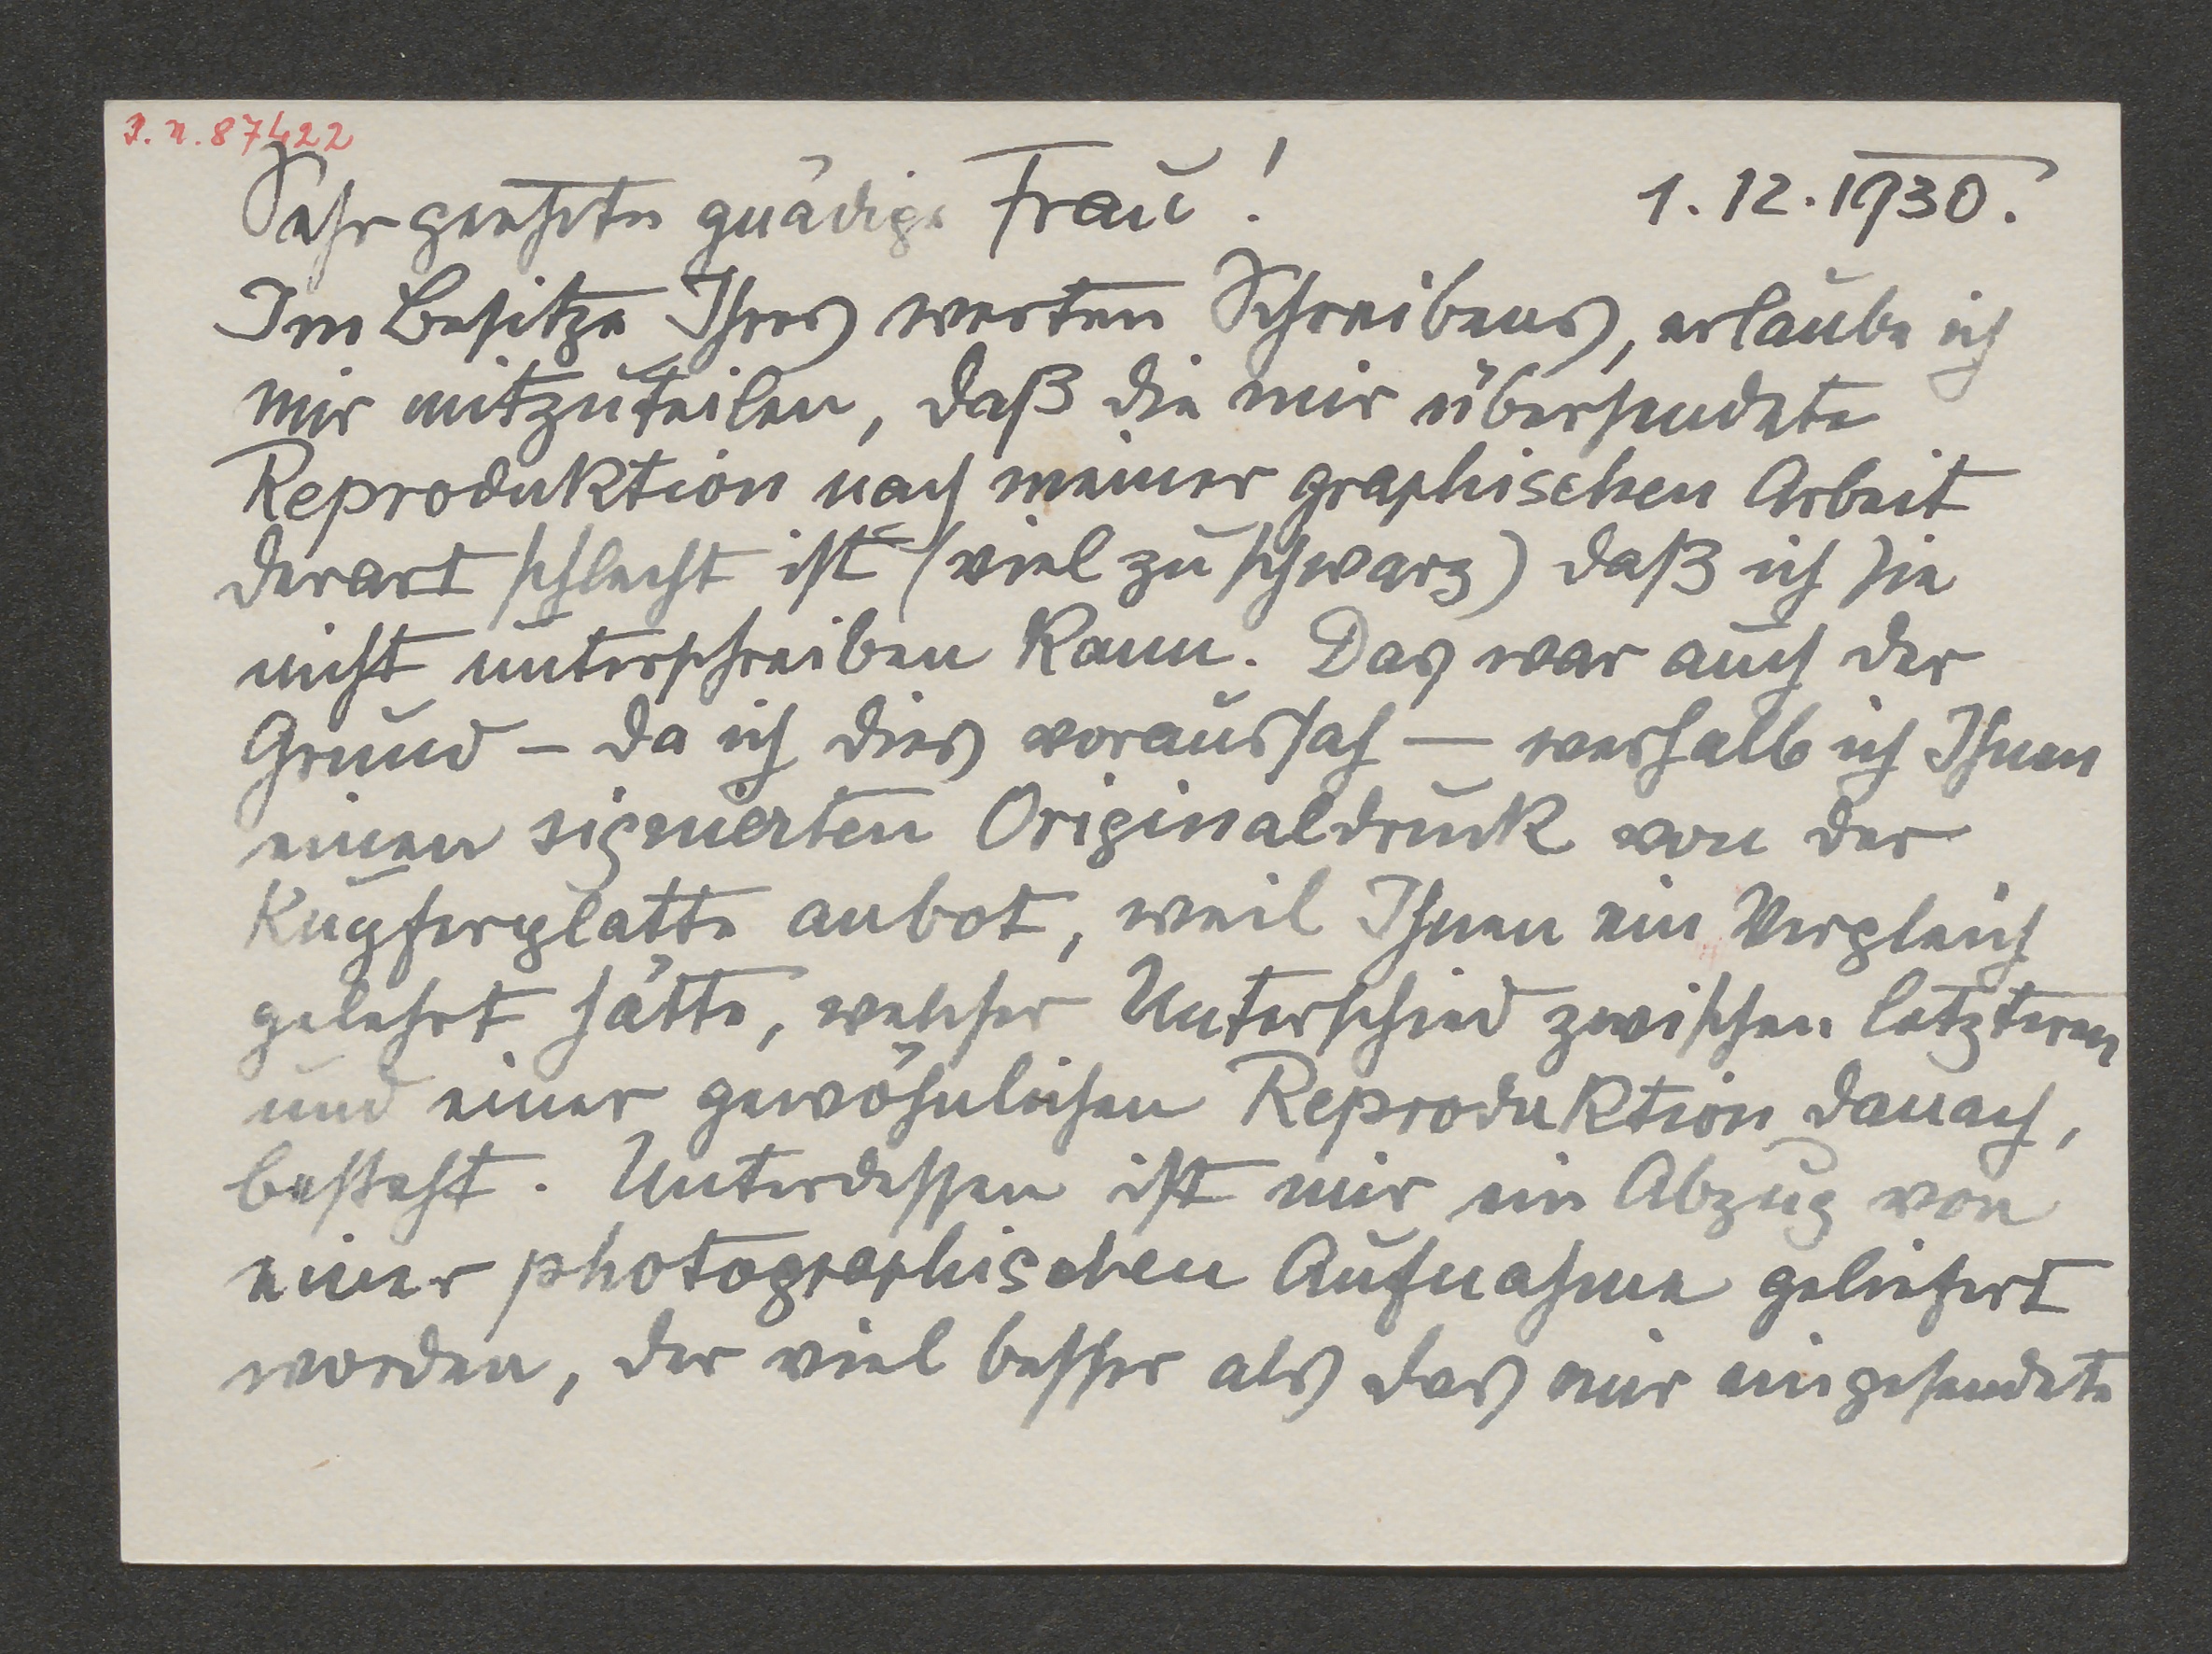 I. N. 87422
Sehr geehrte gnädige Frau! 1.12.1930.
Im Besitze Ihres werten Schreibens, erlaube ich
mir mitzuteilen, daß die mir übersendete
Reproduktion nach meiner graphischen Arbeit
derart schlecht ist (viel zu schwarz) daß ich sie
nicht unterschreiben kann. Das war auch der
Grund – da ich dies voraussah – weshalb ich Ihnen
einen signierten Originaldruck von der
Kupferplatte anbot, weil Ihnen ein Vergleich
gelehrt hätte, welcher Unterschied zwischen letzteren
und einer gewöhnlichen Reproduktion danach,
besteht. Unterdessen ist mir ein Abzug von
einer photographischen Aufnahme geliefert
worden, der viel besser als das mir eingesendete